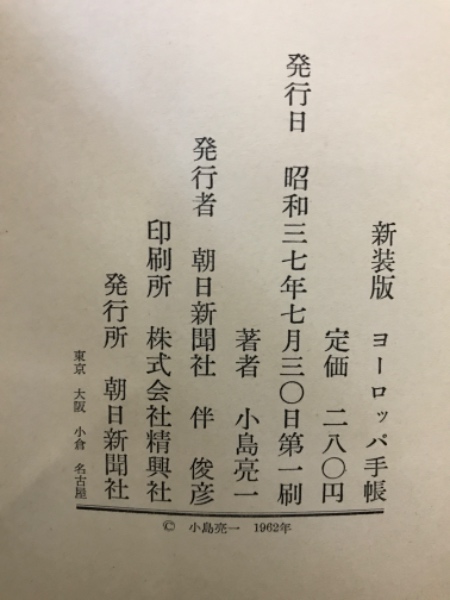 新装版　ヨーロッパ手帳
定価　二八〇円
発行日　昭和三七年七月三〇日第一刷
著者　小島亮一
発行者　朝日新聞社　伴　俊彦
印刷所　株式会社精興社
発行所　朝日新聞社
東京　大阪　小倉　名古屋
© 小島亮一 1962年